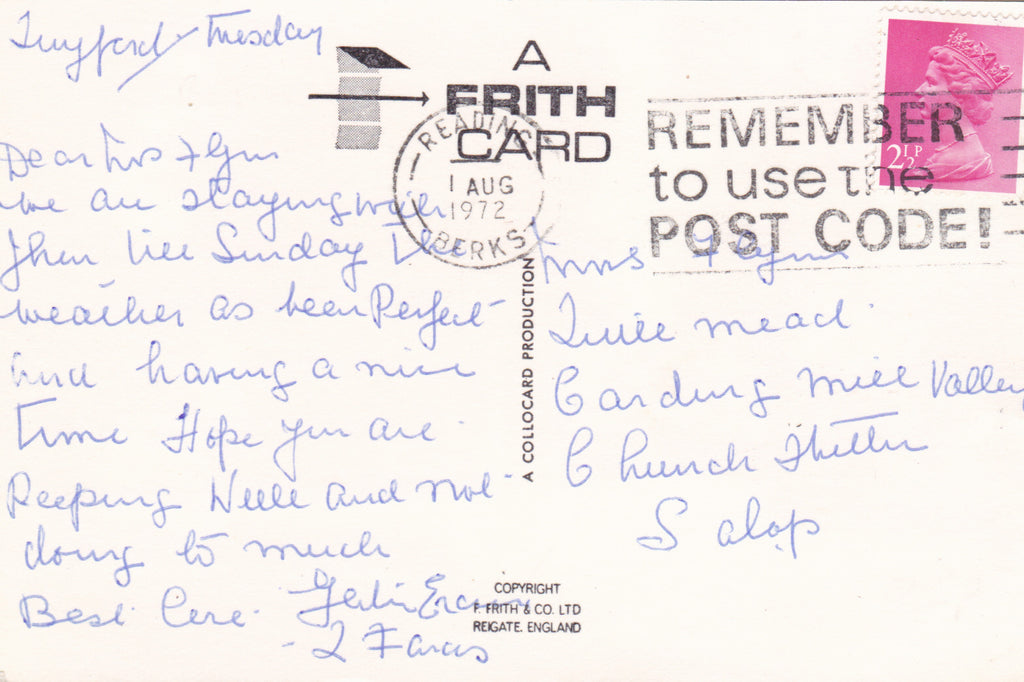 Twyford Tuesday
Dear Mrs Flynn
we are staying with
them till Sunday
weather as been Perfect
And having a nice
time Hope you are
Keeping Well and not
doing to much
Best
A
FRITH
CARD
READING
1 AUG
1972
BERKS
REMEMBER
to use the
POST CODE!
2½P
A COLLOCARD PRODUCTION
Mrs Flynn
mead
Carding Mill Valley
Church Stretton
Salop
COPYRIGHT
F. FRITH & CO. LTD
REIGATE. ENGLAND